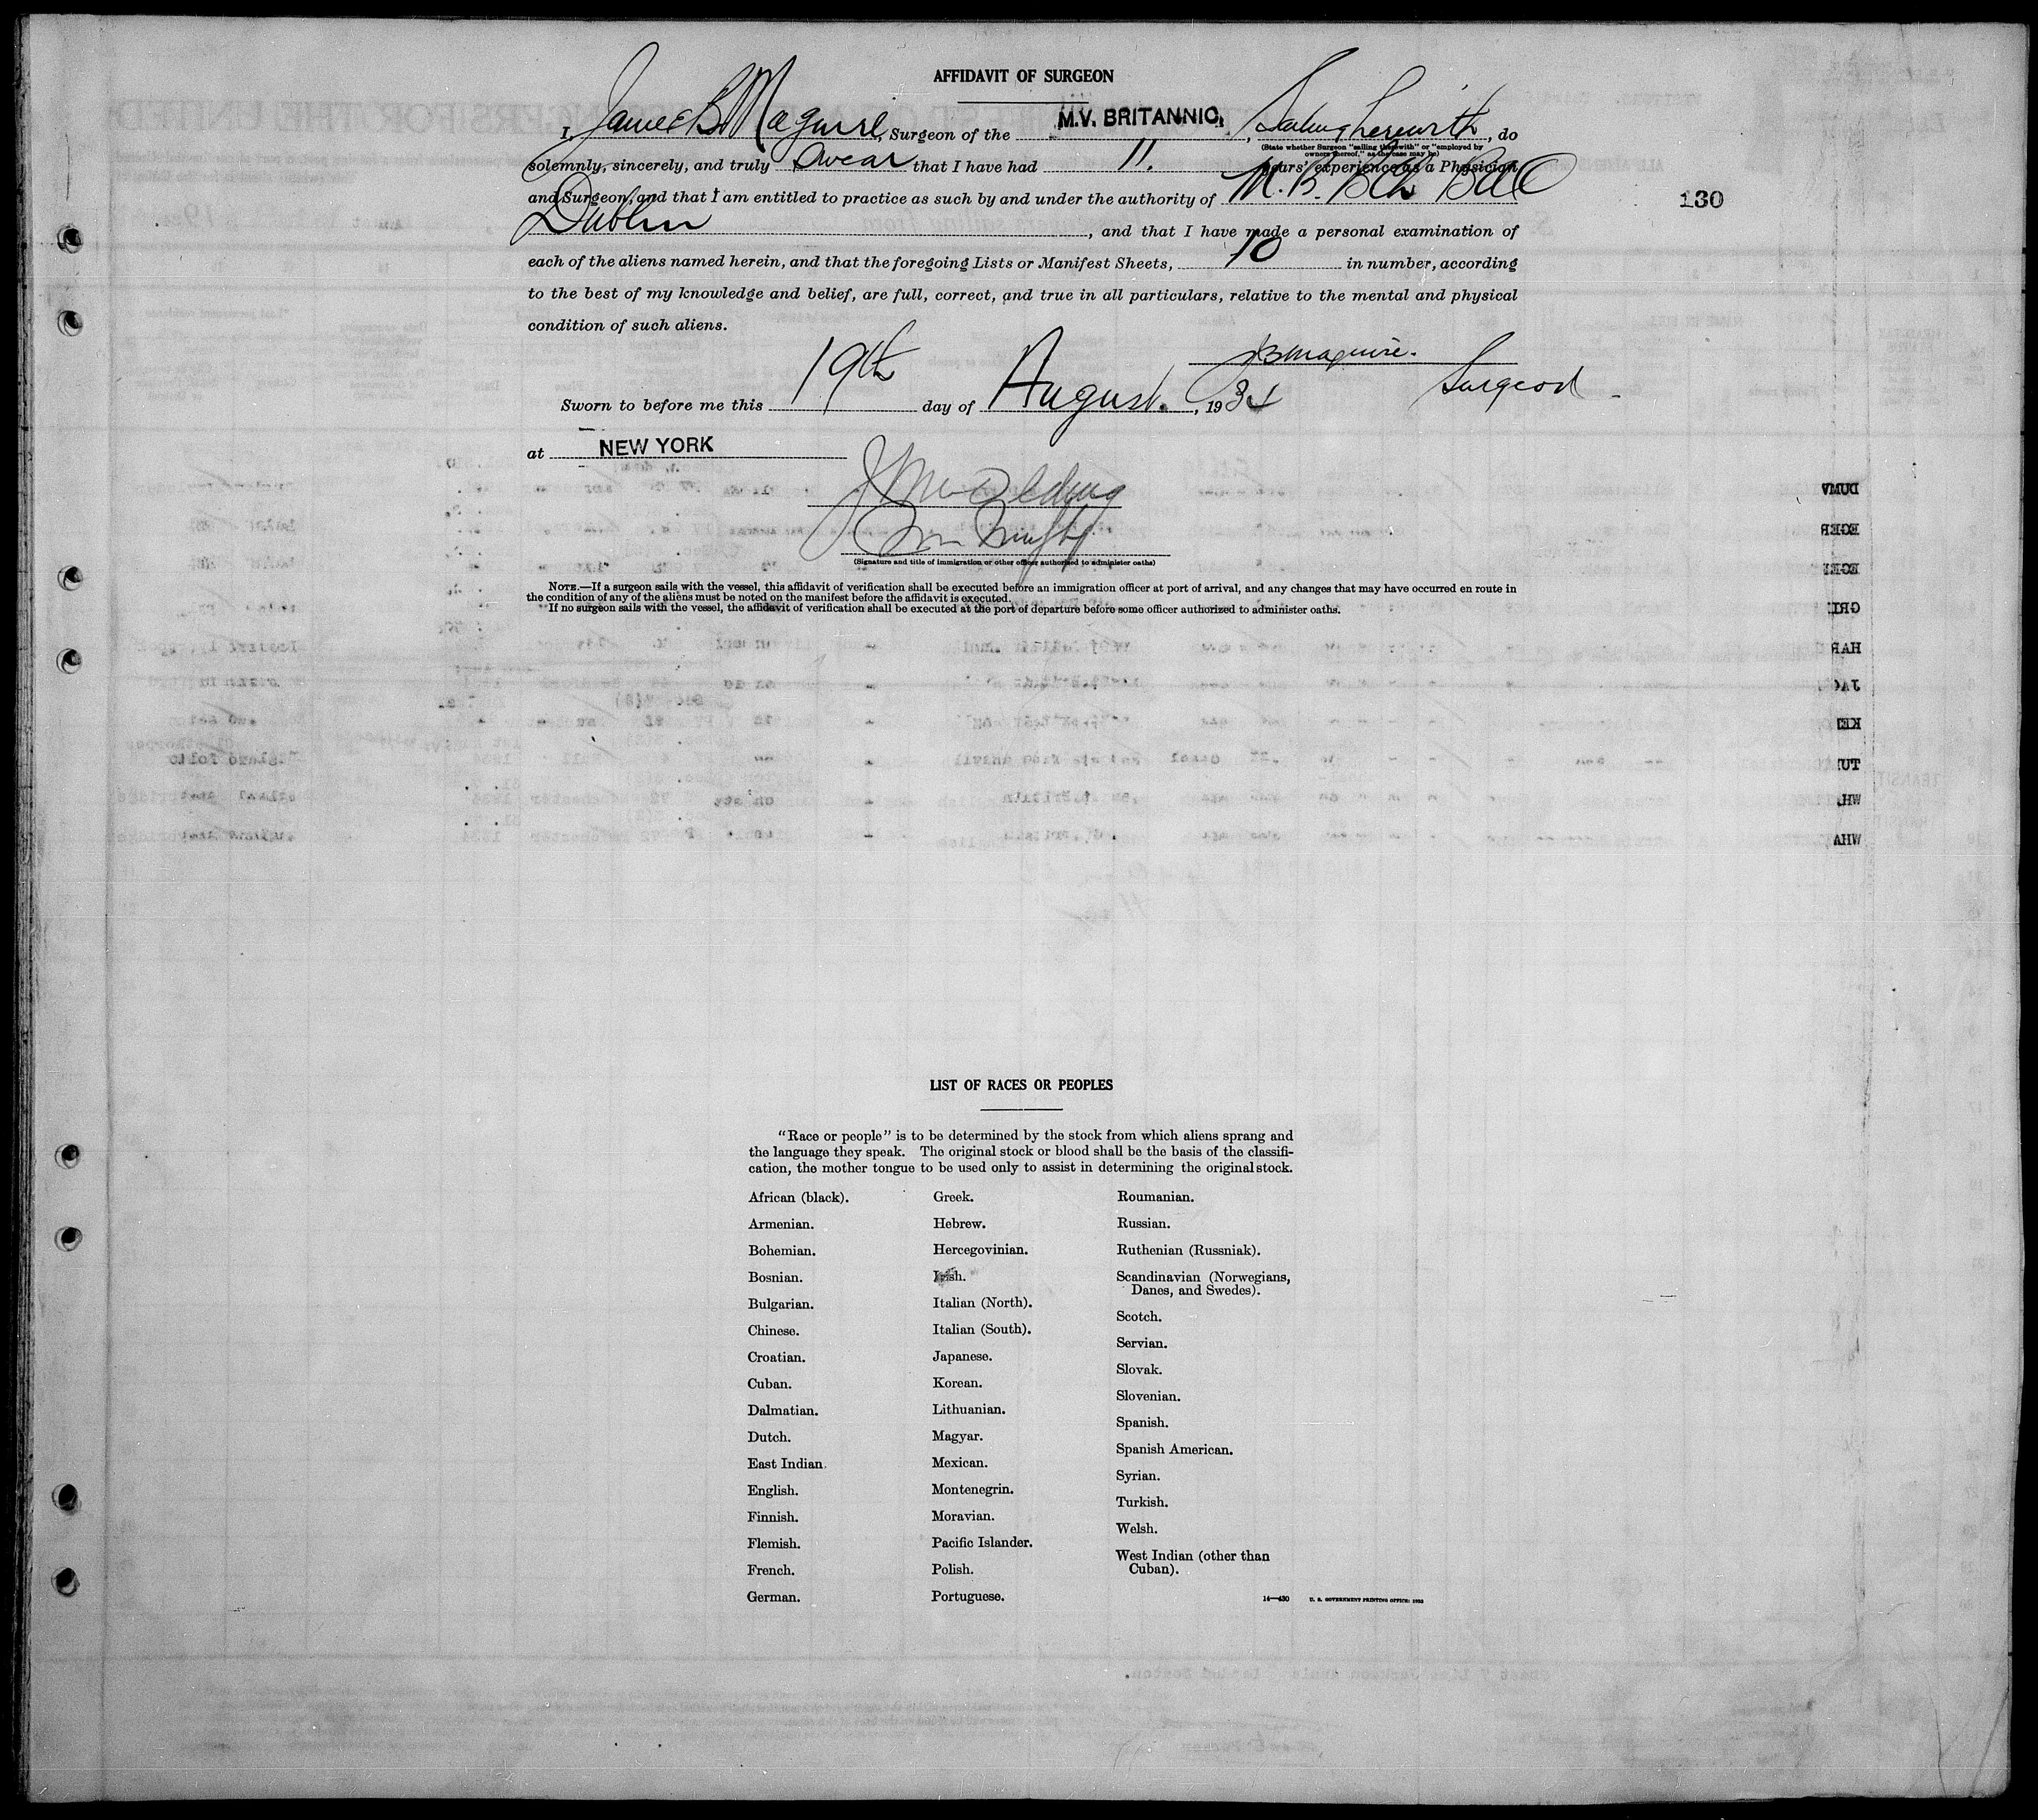 AFFIDAVIT OF SURGEON
I, James B. Maguire, Surgeon of the M.V. BRITANNIC, Sailing herewith, do
(State whether Surgeon "sailing therewith" or "employed by
owners thereof," as the case may be)
solemnly, sincerely, and truly swear that I have had 11. years' experience as a Physician
and Surgeon, and that I am entitled to practice as such by and under the authority of M.B. BCh
Dublin, and that I have made a personal examination of
130
each of the aliens named herein, and that the foregoing Lists or Manifest Sheets, 10 in number, according
to the best of my knowledge and belief, are full, correct, and true in all particulars, relative to the mental and physical
condition of such aliens.
JBMaguire.
Surgeon
Sworn to before me this 19th day of August, 1934
at NEW YORK
(Signature and title of immigration or other officer authorized to administer oaths)
NOTE.—If a surgeon sails with the vessel, this affidavit of verification shall be executed before an immigration officer at port of arrival, and any changes that may have occurred en route in
the condition of any of the aliens must be noted on the manifest before the affidavit is executed.
If no surgeon sails with the vessel, the affidavit of verification shall be executed at the port of departure before some officer authorized to administer oaths.
LIST OF RACES OR PEOPLES
"Race or people" is to be determined by the stock from which aliens sprang and
the language they speak. The original stock or blood shall be the basis of the classifi-
cation, the mother tongue to be used only to assist in determining the original stock.
African (black).
Armenian.
Bohemian.
Bosnian.
Bulgarian.
Chinese.
Croatian.
Cuban.
Dalmatian.
Dutch.
East Indian.
English.
Finnish.
Flemish.
French.
German.
Greek.
Hebrew.
Hercegovinian.
Irish.
Italian (North).
Italian (South).
Japanese.
Korean.
Lithuanian.
Magyar.
Mexican.
Montenegrin.
Moravian.
Pacific Islander.
Polish.
Portuguese.
Roumanian.
Russian.
Ruthenian (Russniak).
Scandinavian (Norwegians,
Danes, and Swedes).
Scotch.
Servian.
Slovak.
Slovenian.
Spanish.
Spanish American.
Syrian.
Turkish.
Welsh.
West Indian (other than
Cuban).
14—430 U. S. GOVERNMENT PRINTING OFFICE: 1933